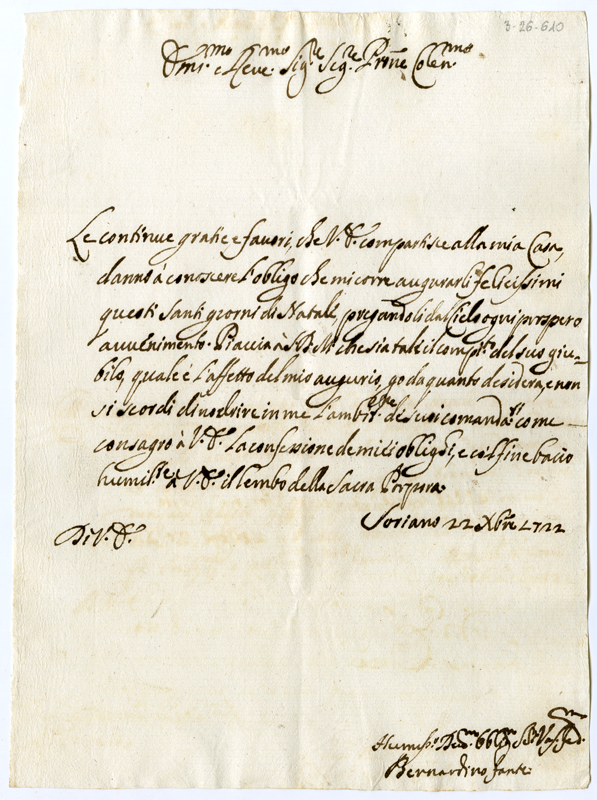 3-26-610
Em.mo e Rev.mo Sig.re Sig.re Prone Colen.mo
Le continue gratie e favori, che V. E. compartisce alla mia Casa,
danno à conoscere l'obligo che mi corre augurarli felicissimi
questi Santi giorni di Natale, pregandoli dal Cielo ogni prospero
avvenimento. Piaccia à S. D. M. che sia tale il comp.to del suo giu-
bilo, quale è l'affetto del mio augurio, goda quanto desidera, e non
si scordi di nodrire in me l'amb.e de suoi comandi come
consagro à V. E. la confessione de miei oblighi, e col fine bacio
humil.te à V. E. il lembo della Sacra Porpora.
Soriano 22 Xbre 1722
Di V. E.
Humilss.o
Bernardino Fante